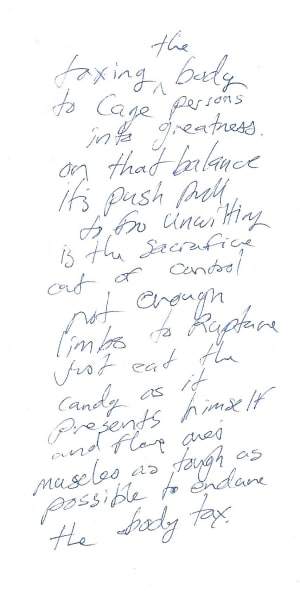 the
taxing ^ body
to Cage persons
into greatness.
on that balance
its push pull
to too unwitting
is the sacrifice
cat of control
not enough
limbs to Rupture
Just eat the
candy as it
presents himself
and flare one's
muscles as tough as
possible to endure
the body tax.